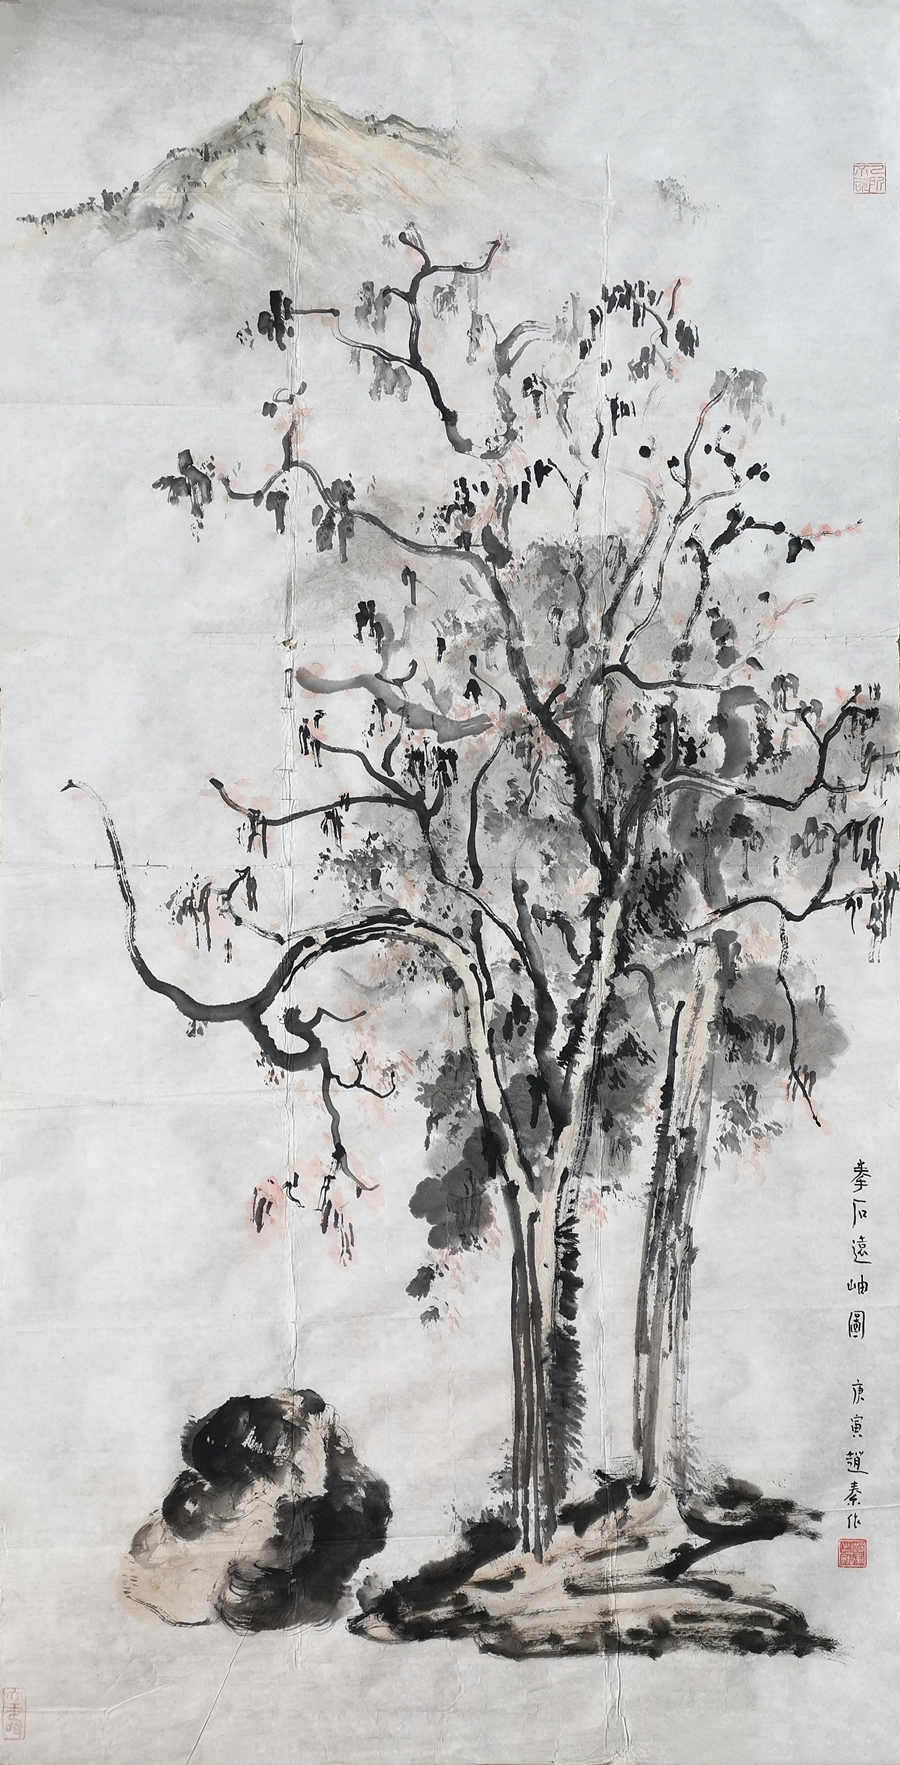 拳石遠岫圖 庚寅趙秦作